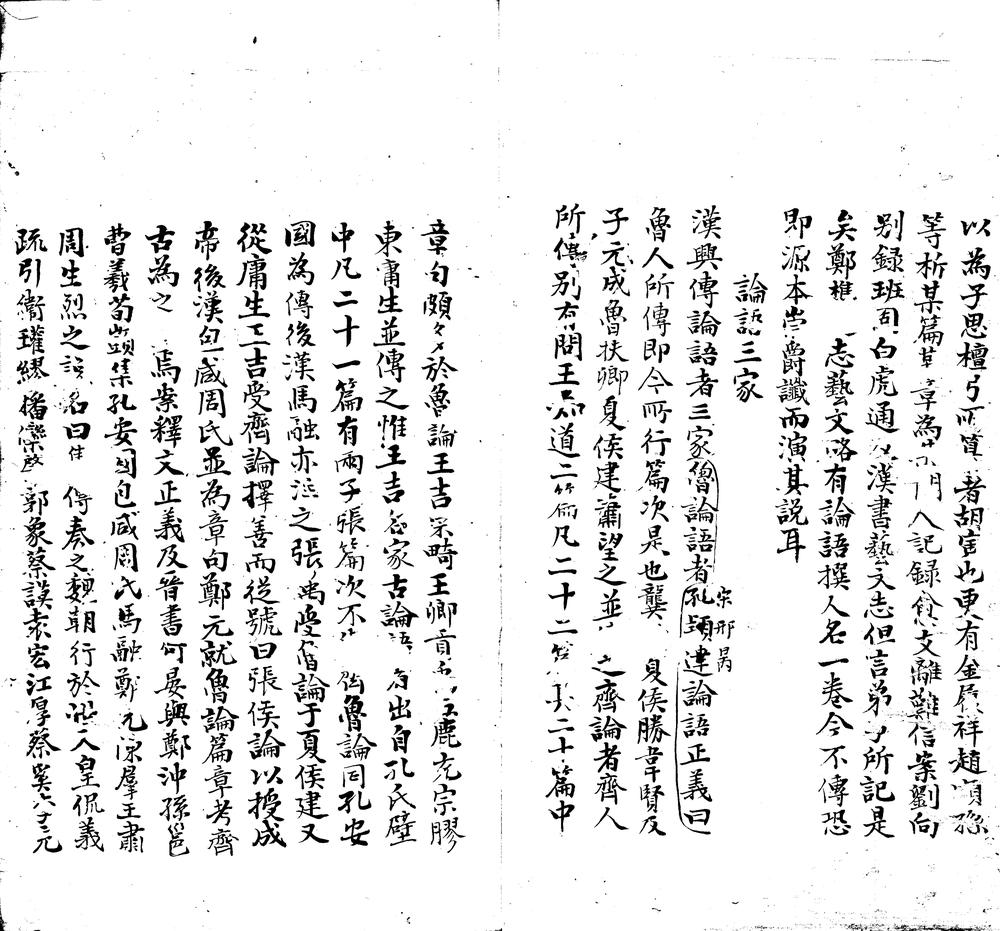 以為子思檀弓所篹者胡寅也更有金履祥趙順孫
等析某篇某章為某門人記録食支離難信案劉向
别録班固白虎通及漢書藝文志但言弟子所記是
矣鄭樵 志藝文略有論語撰人名一卷今不傳恐
即源本崇爵讖而演其説耳
論語三家
漢興傳論語者三家魯論語者孔穎達論語正義曰
宋邢昺
魯人所傳即今所行篇次是也龔 夏侯勝韋賢及
子元成魯扶卿夏侯建蕭望之並 之齊論者齊人
所傳别有問王知道二篇凡二十二篇其二十篇中
章句頗多於魯論王吉宋畸王卿貢禹五鹿充宗膠
東庸生並傳之惟王吉名家古論語 出自孔氏壁
中凡二十一篇有兩子張篇次不 魯論同孔安
國為傳後漢馬融亦 之張禹受魯論于夏侯建又
從庸生王吉受齊論擇善而從號曰張侯論以授成
帝後漢包咸周氏並為章句鄭元就魯論篇章考齊
古為之 焉案釋文正義及晉書何晏與鄭沖孫邕
曹羲荀顗集孔安國包咸周氏馬融鄭元陳羣王肅
周生烈之説名曰 奏之魏朝行於 人皇侃義
疏引衞瓘繆播欒 郭象蔡謨袁宏江厚蔡奚 元